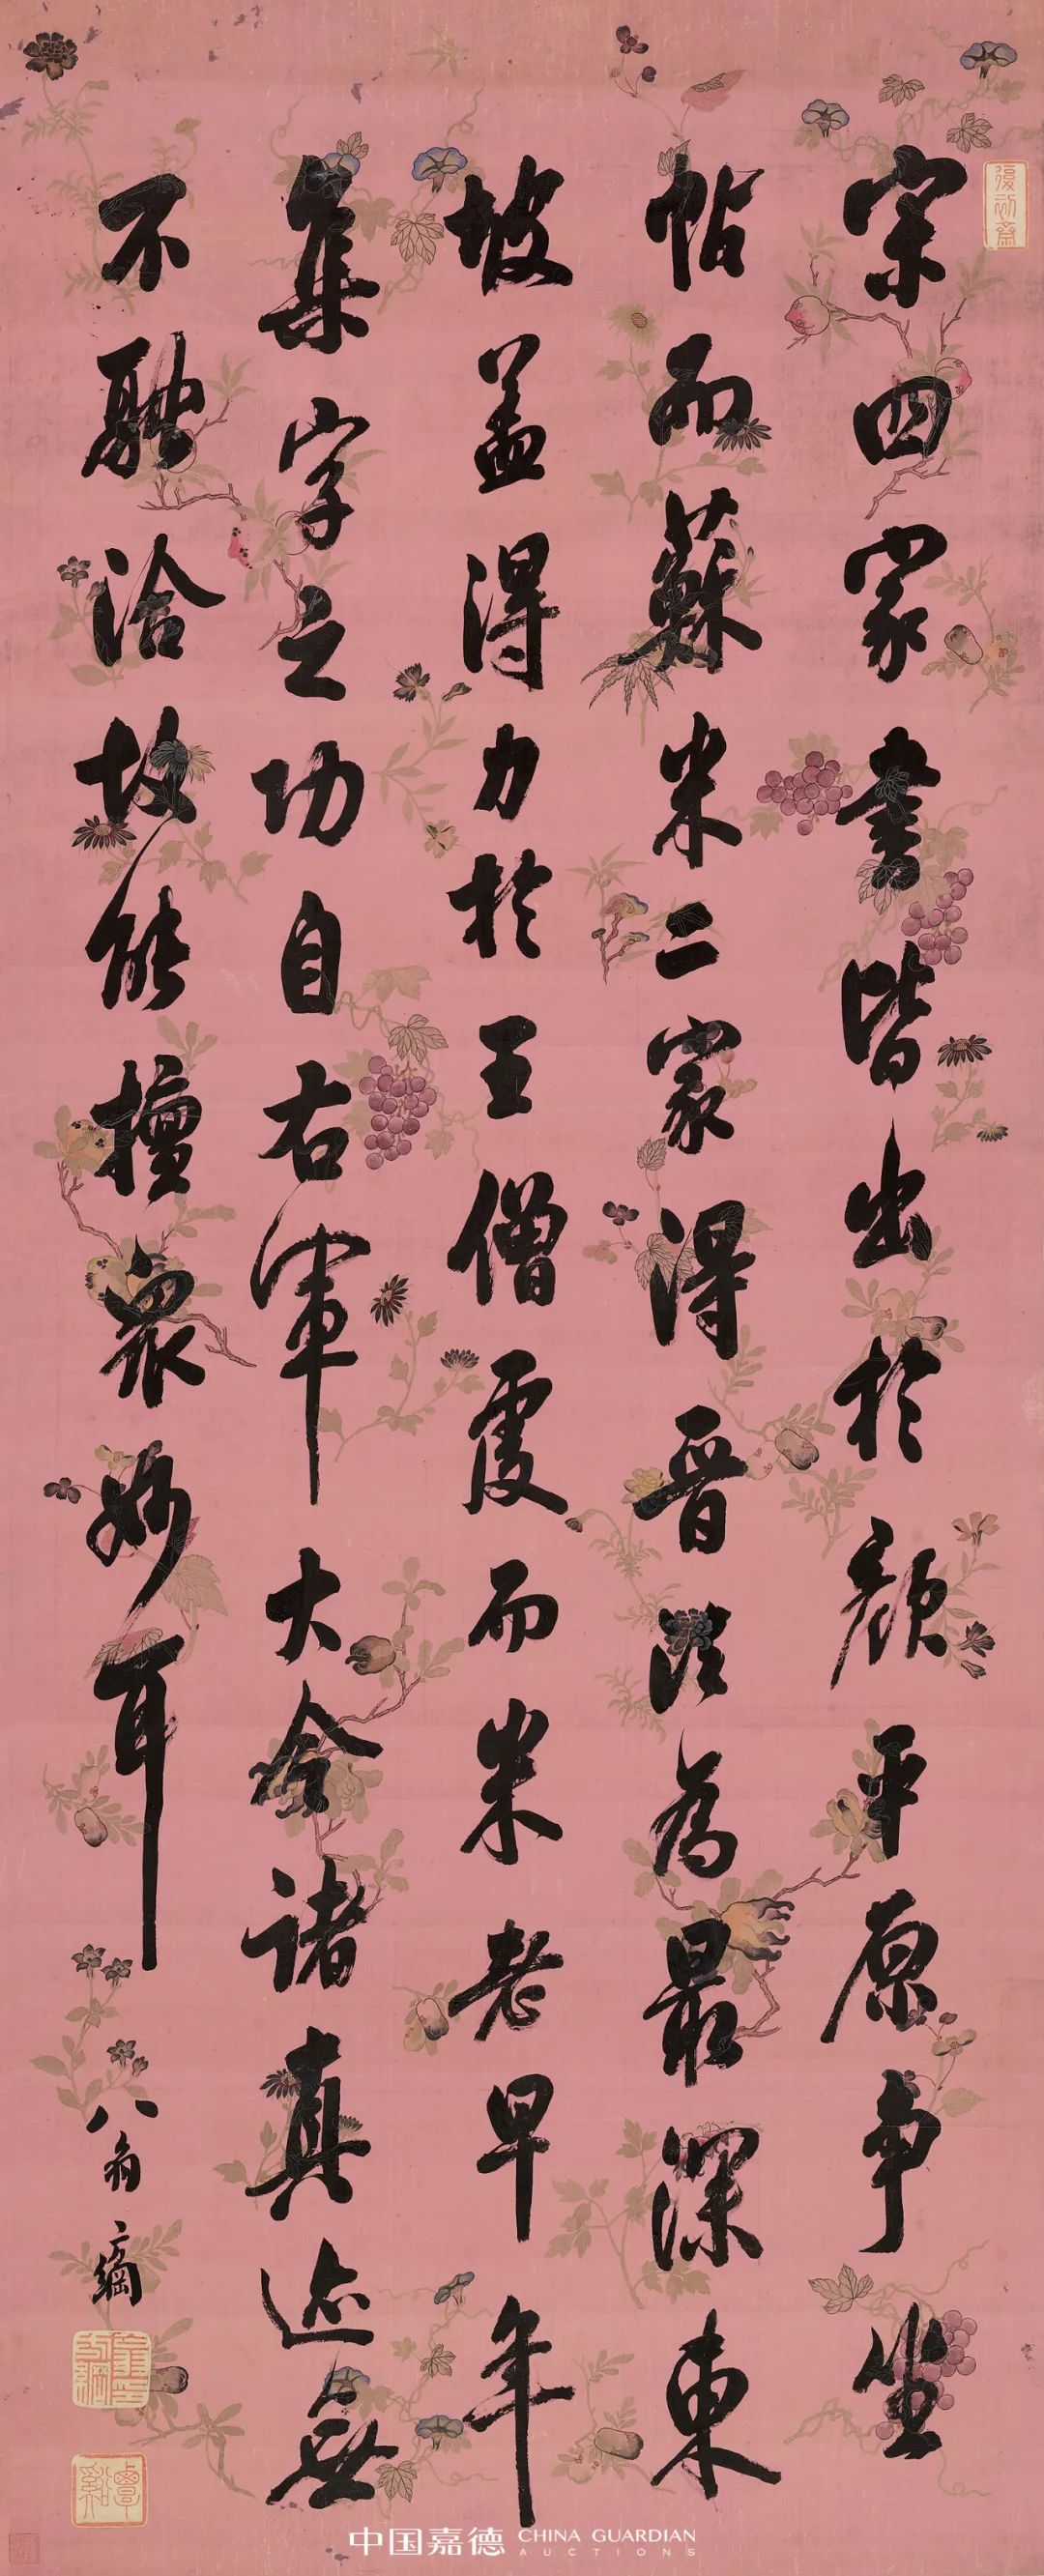 宋四家書皆出於顏平原争坐
帖而蘇米二家得晉法為最深東
坡蓋得力於王僧虔而米老早年
集字之功自右軍大令諸真迹無
不融洽故能擅衆妙耳
八翁綱
復初齋
翁方綱印
覃谿
中国嘉德 CHINA GUARDIAN
AUCTIONS